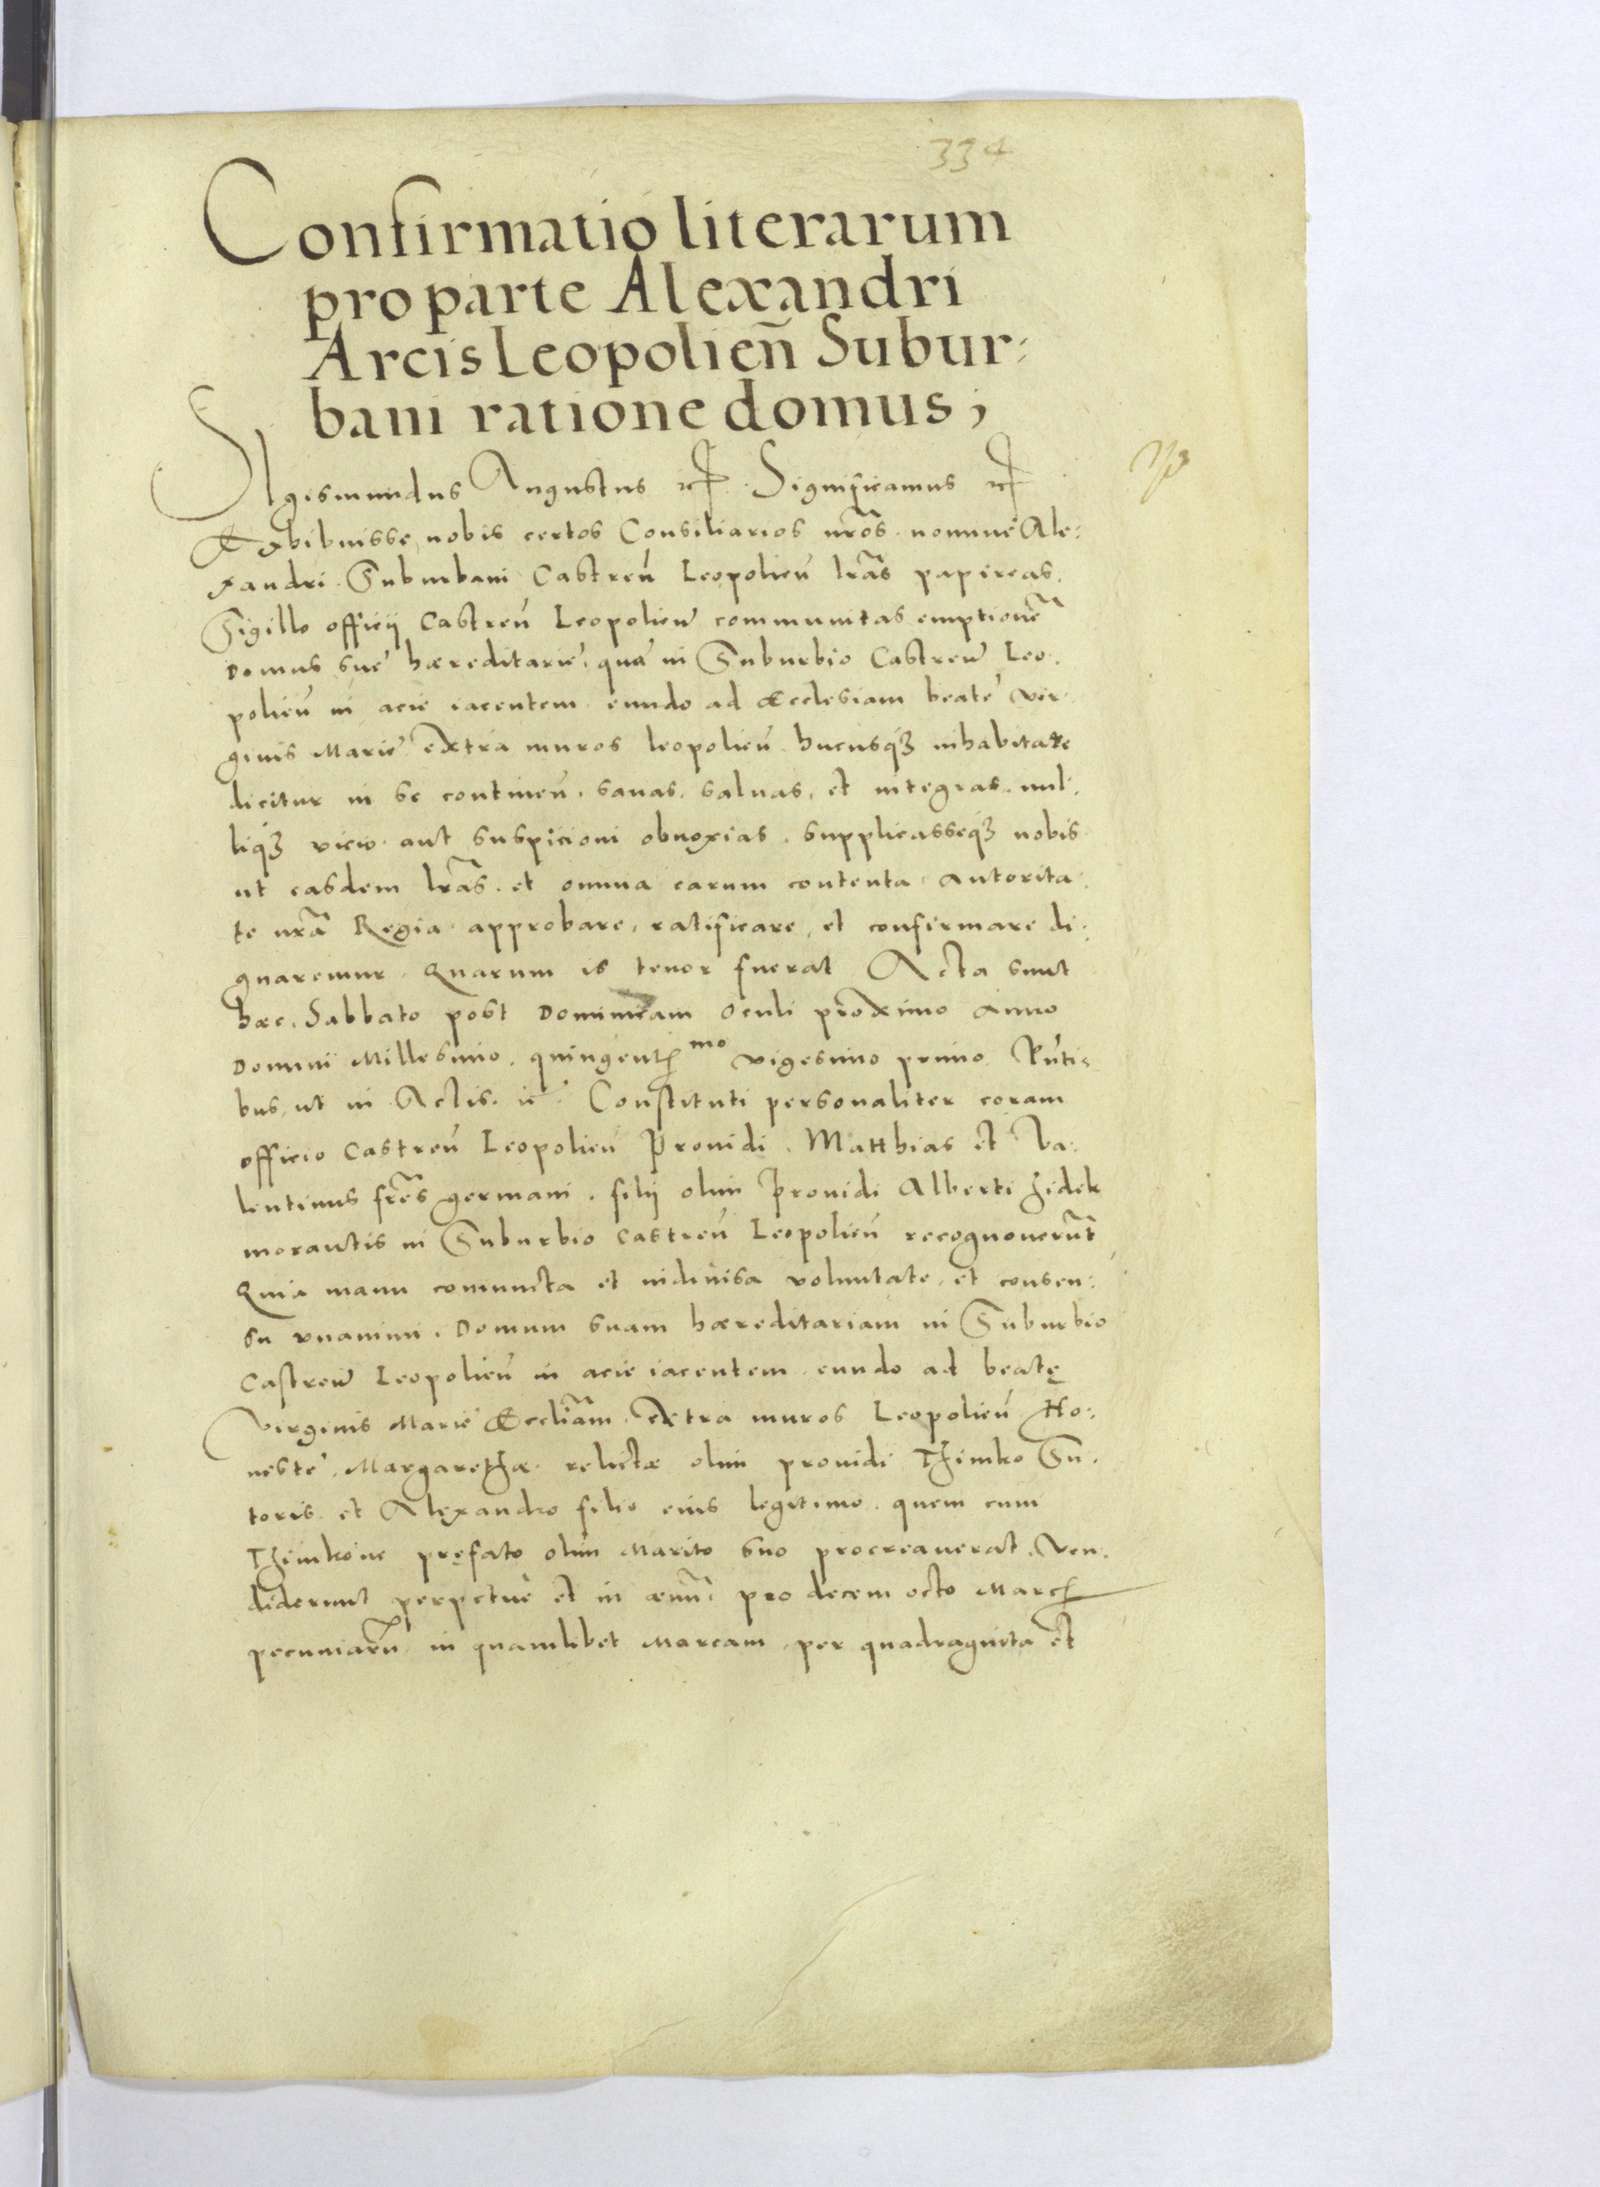 334
Confirmatio literarum
pro parte Alexandri
Arcis Leopolieñ Subur:
bani ratione domus;
Sigismundus Augustus etc. Significamus etc.
Exhibuisse nobis certos Consiliarios nr̃os nomine Ale:
xandri Suburbani Castreñ Leopolieñ lr̃as papireas.
Sigillo officij Castreñ Leopolieñ communitas emptionẽ
Domus suę hæreditarię, quã in Suburbio Castreñ Leo.
polieñ in acie iacentem eundo ad Æcclesiam beatę Vir
ginis Marię extra muros leopolieñ hucusq3 inhabitare
dicitur in se contineñ. sanas. saluas, et integras. nul:
liq3 vicio aut suspicioni obnoxias. supplicasseq3 nobis
ut easdem lr̃as et omnia earum contenta autorita:
te nr̃a Regia approbare, ratificare, et confirmare di:
gnaremur. Quarum is tenor fuerat Acta sunt
hæc. Sabbato post Dominicam Oculi proximo Anno
Domini Millesimo. quingentesmo vigesimo primo. Pñti:
bus, ut in Actis. etc. Constituti personaliter coram
officio Castreñ Leopolieñ Prouidi. Matthias et Va:
lentinus fr̃es germani. filij olim Prouidi Alberti Zidek
morantis in Suburbio castreñ Leopolieñ recognouerũt
Quia manu coniuncta et indiuisa voluntate, et consen:
su vnanimi. Domum suam hæreditariam in Suburbio
Castreñ Leopolieñ in acie iacentem eundo ad beatę
Virginis Marię Æccliãm. extra muros Leopolieñ Ho:
nestę. Margarethæ. relictæ olim prouidi Thimko Su.
toris. et Alexandro filio eius legitimo. quem cum
Thimkone pręfato olim Marito suo procreauerat. Ven.
diderunt perpetuè et in æuũ pro decem octo Marc̃
pecuniarũ in quamlibet Marcam per quadraginta et